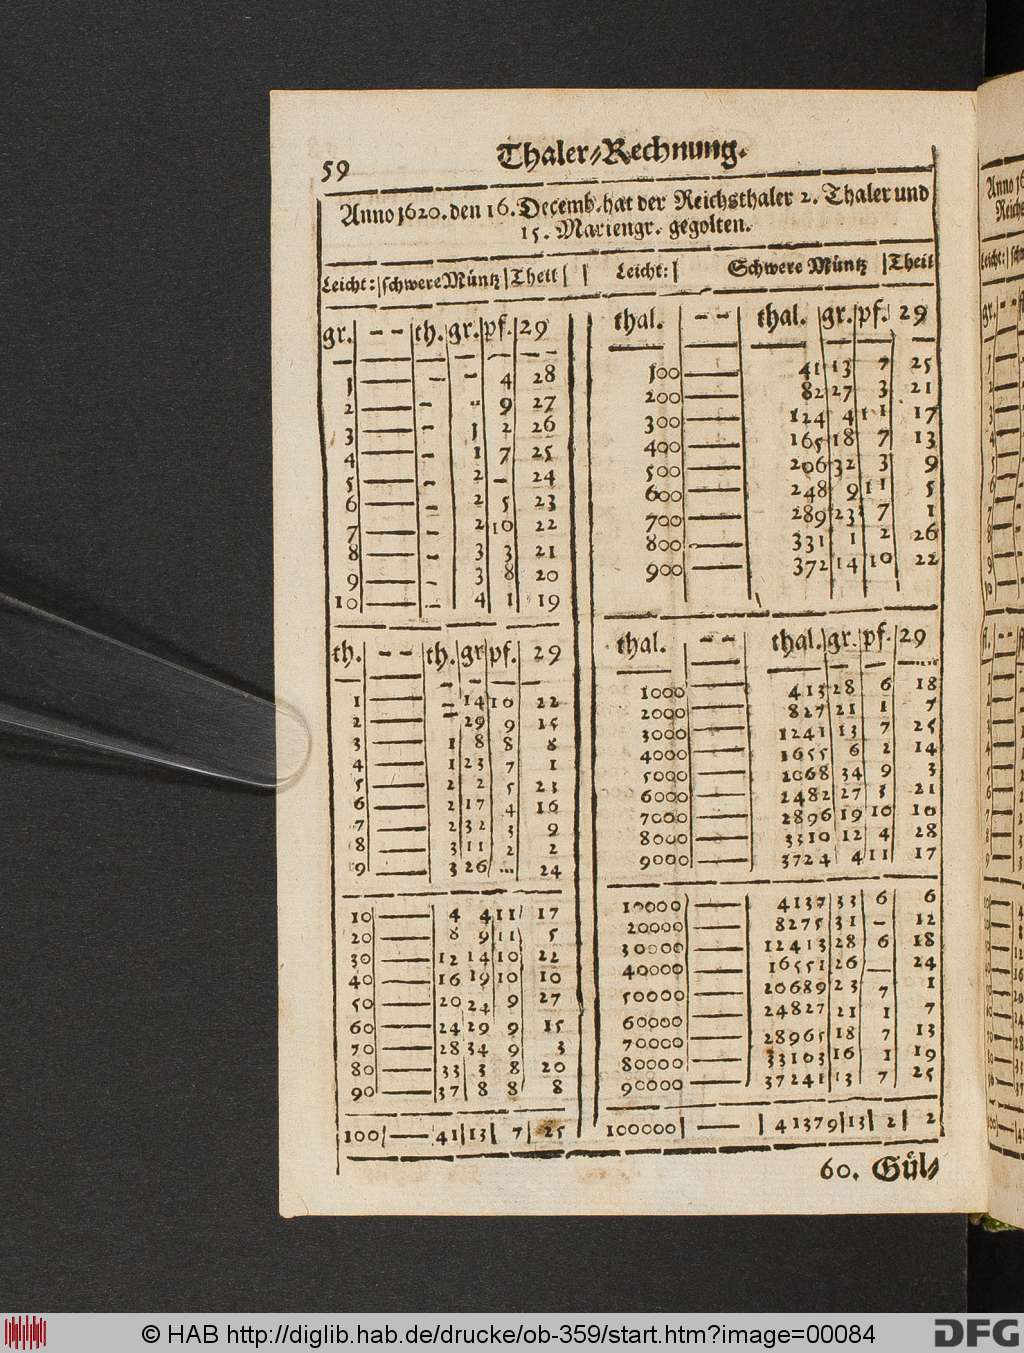 59
Thaler-Rechnung.
Anno 1620. den 16. Decemb. hat der Reichsthaler 2. Thaler und
15. Mariengr. gegolten.
Leicht: schwere Müntz Theil
gr. -- th. gr. pf. 29
1 — - - 4 28
2 — - - 9 27
3 — - 1 2 26
4 — - 1 7 25
5 — - 2 - 24
6 — - 2 5 23
7 — - 2 10 22
8 — - 3 3 21
9 — - 3 8 20
10 — - 4 1 19
th. -- th. gr. pf. 29
1 — - 14 10 22
2 — - 29 9 15
3 — 1 8 8 8
4 — 1 23 7 1
5 — 2 2 5 23
6 — 2 17 4 16
7 — 2 32 3 9
8 — 3 11 2 2
9 — 3 26 ... 24
10 — 4 4 11 17
20 — 8 9 11 5
30 — 12 14 10 22
40 — 16 19 10 10
50 — 20 24 9 27
60 — 24 29 9 15
70 — 28 34 9 3
80 — 33 3 8 20
90 — 37 8 8 8
100 — 41 13 7 25
Leicht: Schwere Müntz Theil
thal. -- thal. gr. pf. 29
100 — 41 13 7 25
200 — 82 27 3 21
300 — 124 4 11 17
400 — 165 18 7 13
500 — 206 32 3 9
600 — 248 9 11 5
700 — 289 23 7 1
800 — 331 1 2 26
900 — 372 14 10 22
thal. -- thal. gr. pf. 29
1000 — 413 28 6 18
2000 — 827 21 1 7
3000 — 1241 13 7 25
4000 — 1655 6 2 14
5000 — 2068 34 9 3
6000 — 2482 27 3 21
7000 — 2896 19 10 10
8000 — 3310 12 4 28
9000 — 3724 4 11 17
10000 — 4137 33 6 6
20000 — 8275 31 - 12
30000 — 12413 28 6 18
40000 — 16551 26 — 24
50000 — 20689 23 7 1
60000 — 24827 21 1 7
70000 — 28965 18 7 13
80000 — 33103 16 1 19
90000 — 37241 13 7 25
100000 — 41379 13 2 2
60. Gül-
© HAB http://diglib.hab.de/drucke/ob-359/start.htm?image=00084
DFG